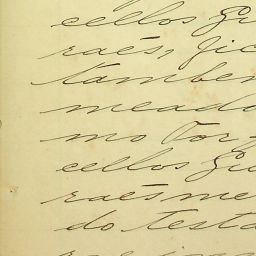 cellos Gui
raes, fic
tambem
meado
mo Tor-
cellos Gui
raes me
do testa